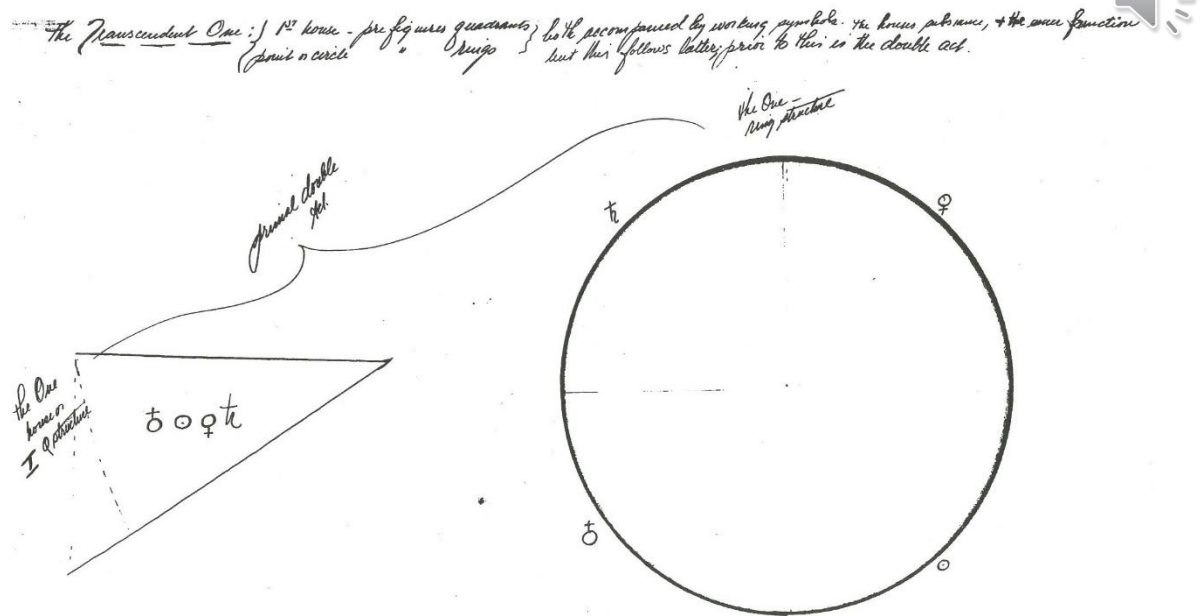 The Transcendent One: } 1st house - prefigures quadrants } both accompanied by working symbols. The houses substance, + the inner function
{ point or circle " rings } but this follows latter; prior to this is the double act.
the One -
ring structure
primal double
Act.
♄
♀
the One
house or
I Q structure
♁ ☉ ♀ ♄
♁
☉